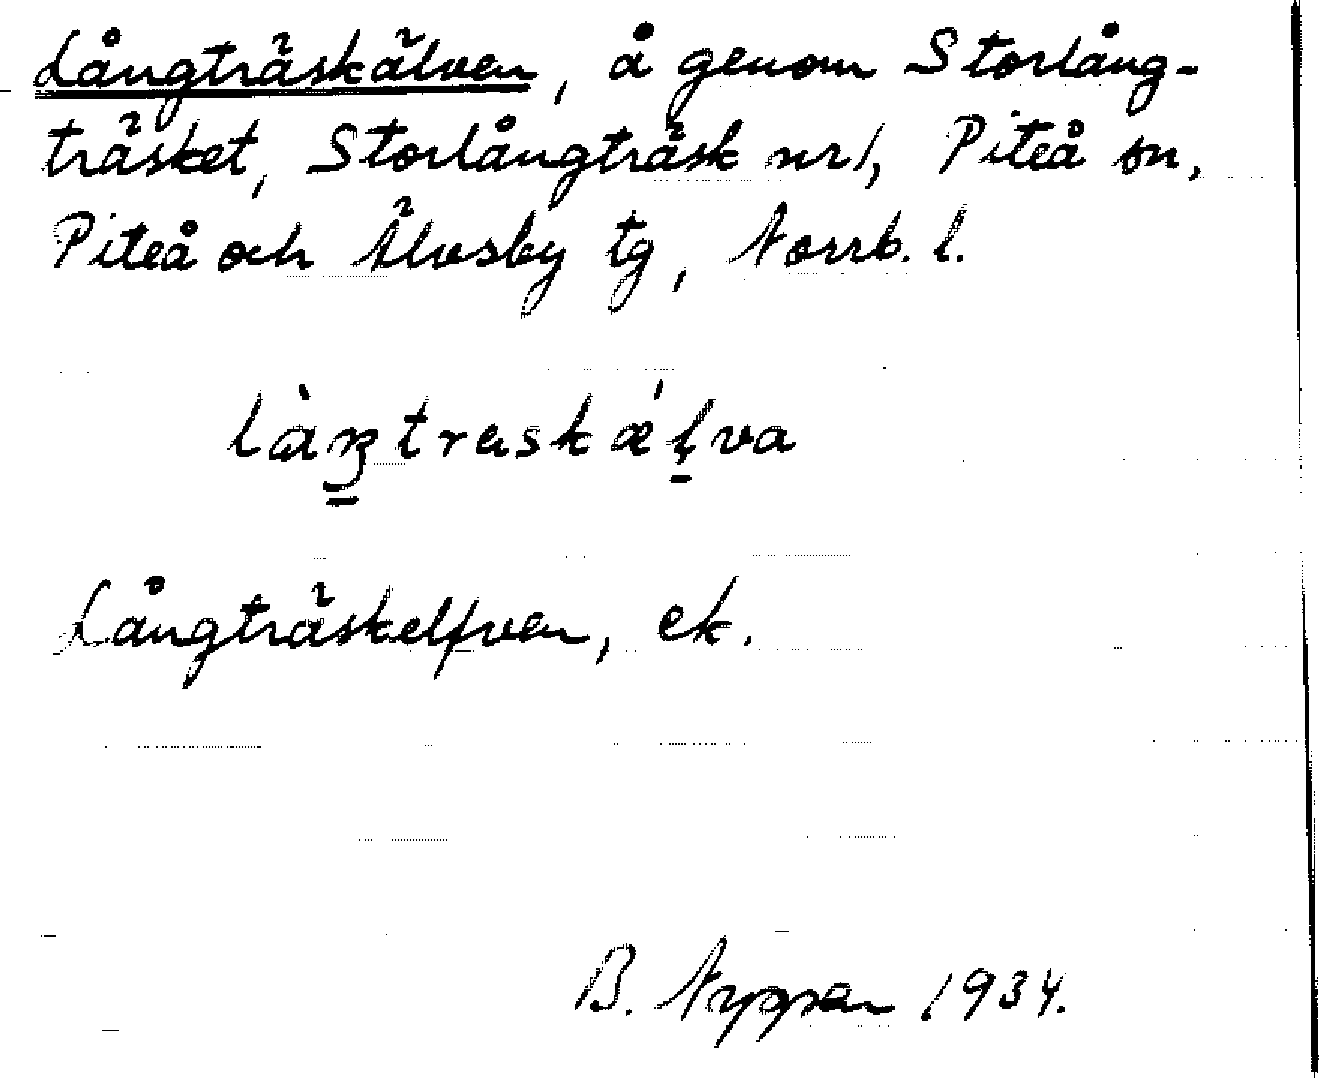 Långträskälven, å genom Storlång-
träsket, Storlångträsk nr 1, Piteå sn,
Piteå och Älvsby tg, Norrb. l.
Långträskelfven, ek.
B. 1934.